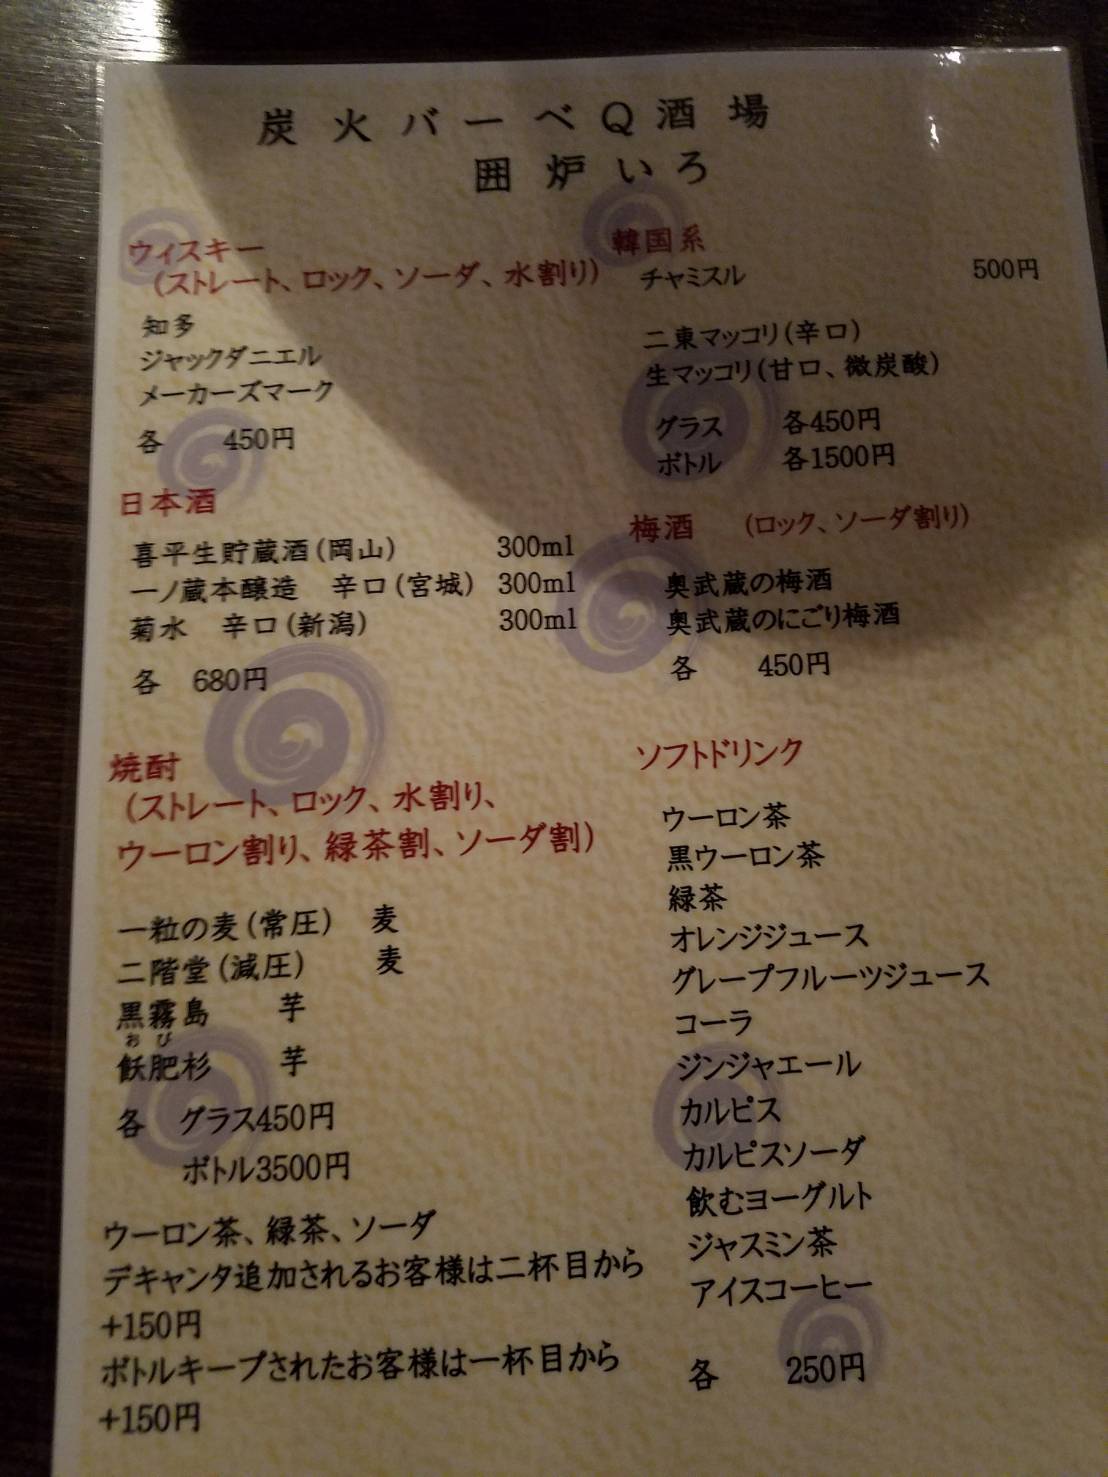 炭火バーベQ酒場
囲炉いろ
ウィスキー
(ストレート、ロック、ソーダ、水割り)
知多
ジャックダニエル
メーカーズマーク
各 450円
日本酒
喜平生貯蔵酒(岡山) 300ml
一ノ蔵本醸造 辛口(宮城) 300ml
菊水 辛口(新潟) 300ml
各 680円
焼酎
(ストレート、ロック、水割り、
ウーロン割り、緑茶割、ソーダ割)
一粒の麦(常圧) 麦
二階堂(減圧) 麦
黒霧島 芋
おび
飫肥杉 芋
各 グラス450円
ボトル3500円
ウーロン茶、緑茶、ソーダ
デキャンタ追加されるお客様は二杯目から
+150円
ボトルキープされたお客様は一杯目から
+150円
韓国系
チャミスル 500円
二東マッコリ(辛口)
生マッコリ(甘口、微炭酸)
グラス 各450円
ボトル 各1500円
梅酒 (ロック、ソーダ割り)
奥武蔵の梅酒
奥武蔵のにごり梅酒
各 450円
ソフトドリンク
ウーロン茶
黒ウーロン茶
緑茶
オレンジジュース
グレープフルーツジュース
コーラ
ジンジャエール
カルピス
カルピスソーダ
飲むヨーグルト
ジャスミン茶
アイスコーヒー
各 250円